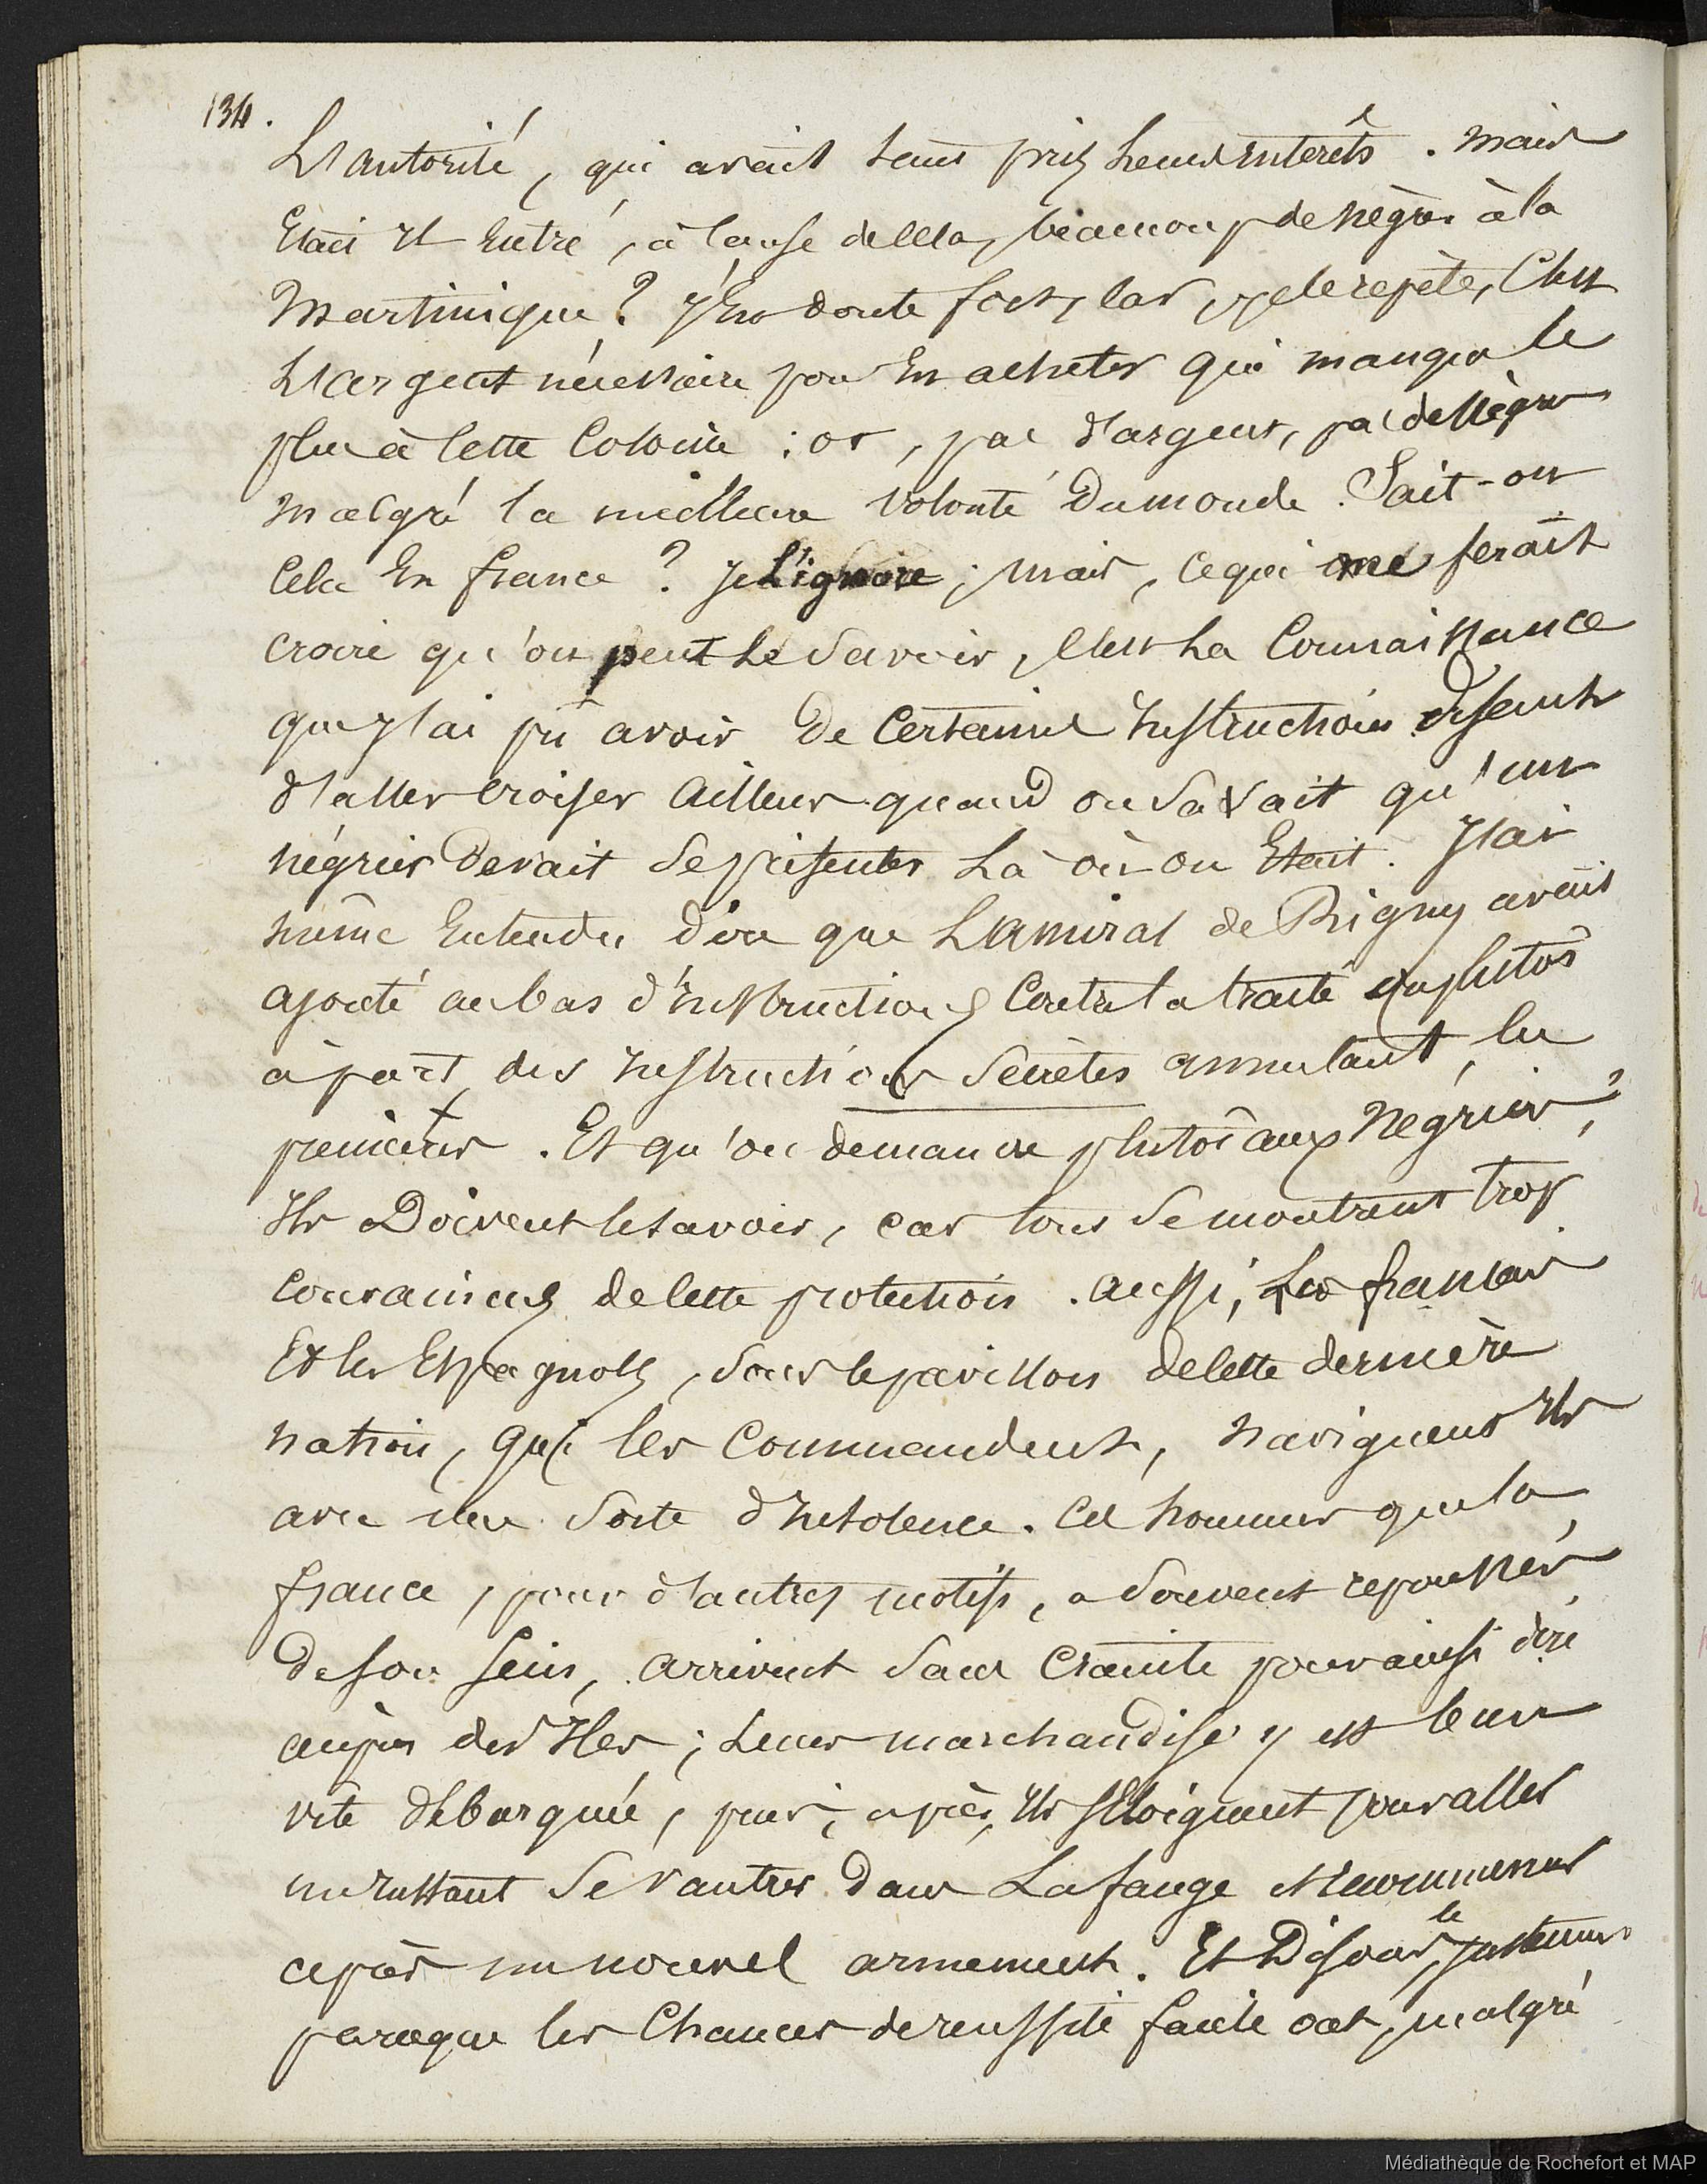 134.
L'autorité, qui avait tant pris leurs interêts. Mais
Etait il Entré, à Cause de Cela, beaucoup de nègres à la
Martinique? J'En doute fort, Car, je le repète, C'est
L'argent nécessaire pour En acheter qui manque le
plus à Cette Colonie : or, pas d'argent, pas de Nègres
malgré la meilleure Volonté Du monde. Sait-on
Cela En france? Je L'ignore; mais, ce qui me ferait
croire qu'on peut Le Savoir, C'est La Connaissance
que j'ai pu avoir De Certaines Instructions disant
d'aller croiser Ailleurs quand on Savait qu'un
négrier Devait Se présenter Là où on Etait. J'ai
même Entendu dire que L'amiral de Rigny avait
ajouté au bas d'instructions Contre la traite ou plutôt
à part, des Instructions Secrètes annulant les
premières. Et qu'on demande plutôt aux Négriers,?
Ils Doivent le savoir, car tous Se montrent trop
Convaincus de Cette protection. Aussi, Les français
Et les Espagnols, Sous le pavillon de Cette dernière
nation, qui les Commandent, naviguent Ils
avec une Sorte d'Insolence. Ces hommes que la
france, pour d'autres motifs, a Souvent repoussés
De Son Sein, arrivent Sans Crainte pour ainsi dire
auprès des Iles; Leur marchandise y est bien
vite débarquée, puis, après, Ils S'Eloignent pour aller
un Instant Se vautrer Dans La fange Et recommencer
après un nouvel armement. Et Disons le justement
parceque les Chances de reussite facile ont, malgré
Médiathèque de Rochefort et MAP